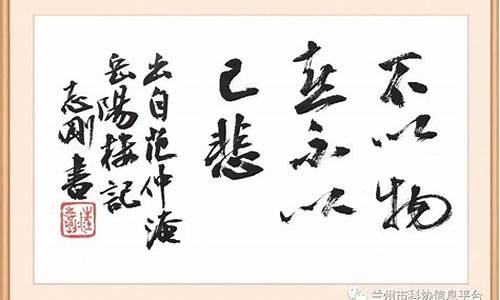 不以物
喜不以
己悲
出自范仲淹
岳陽楼記
志剛書
兰州市科协信息平台